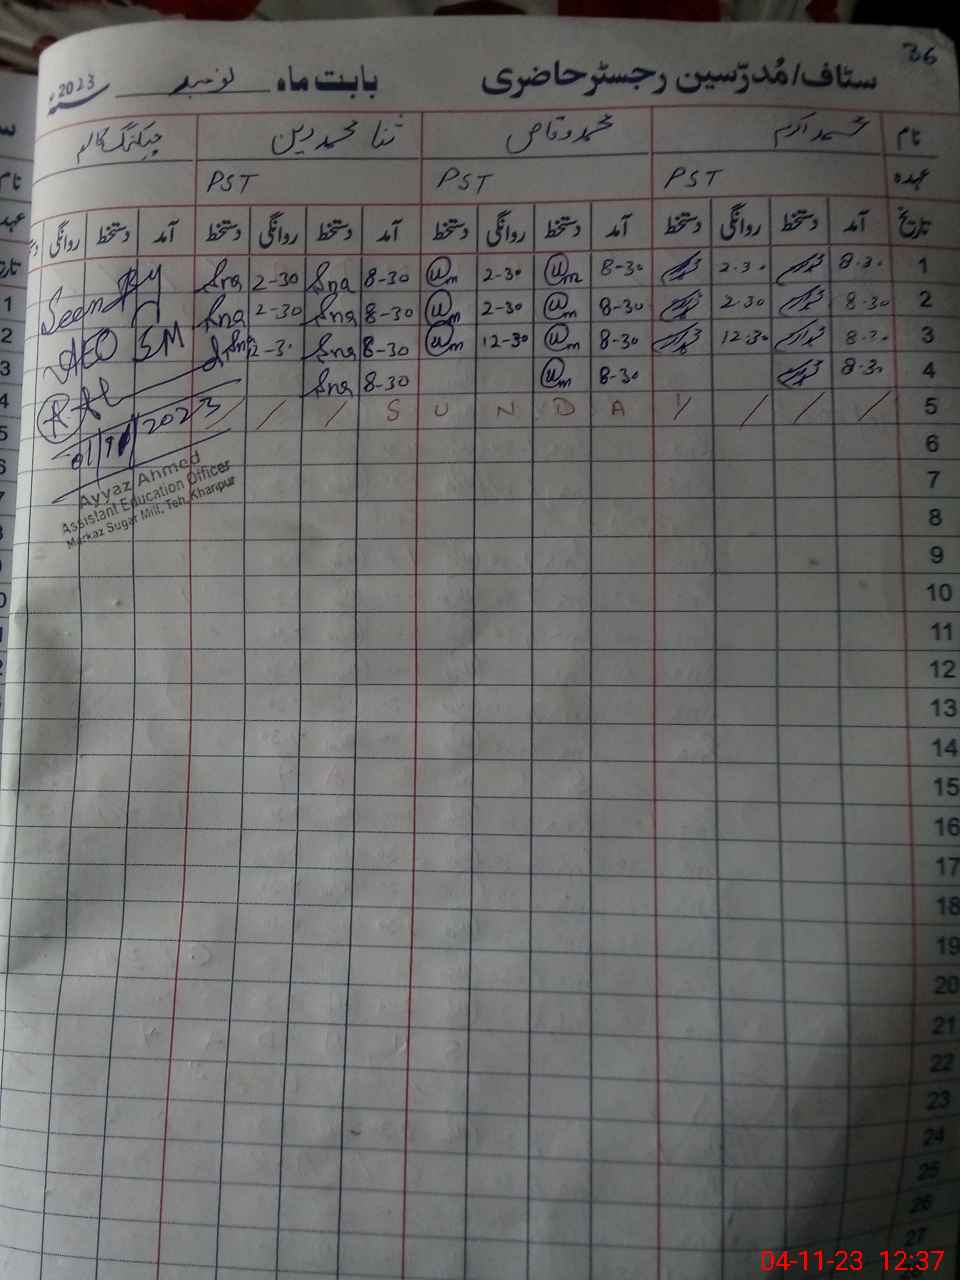 36
سٹاف/مُدرّسین رجسٹر حاضری بابت ماہ نومبر 2023ء
نام محمد اکرم محمد وقاص ثنا محمد دین چیکنگ کالم
عہدہ PST PST PST
تاریخ آمد دستخط روانگی دستخط آمد دستخط روانگی دستخط آمد دستخط روانگی دستخط آمد دستخط روانگی
1 8-30 2-30 8-30 2-30 8-30 Sna 2-30 Sna
2 8-30 2-30 8-30 2-30 8-30 Sna 2-30 Sna
3 8-30 12-30 8-30 12-30 8-30 Sna 12-30 Sna
4 8-30 8-30 8-30 Sna
5 / / / Y A D N U S / / /
6
7
8
9
10
11
12
13
14
15
16
17
18
19
20
21
22
23
24
25
26
27
Seen By
AEO SM
2023
Ayyaz Ahmed
Assistant Education Officer
Markaz Sugar Mill, Teh. Khanpur
04-11-23 12:37